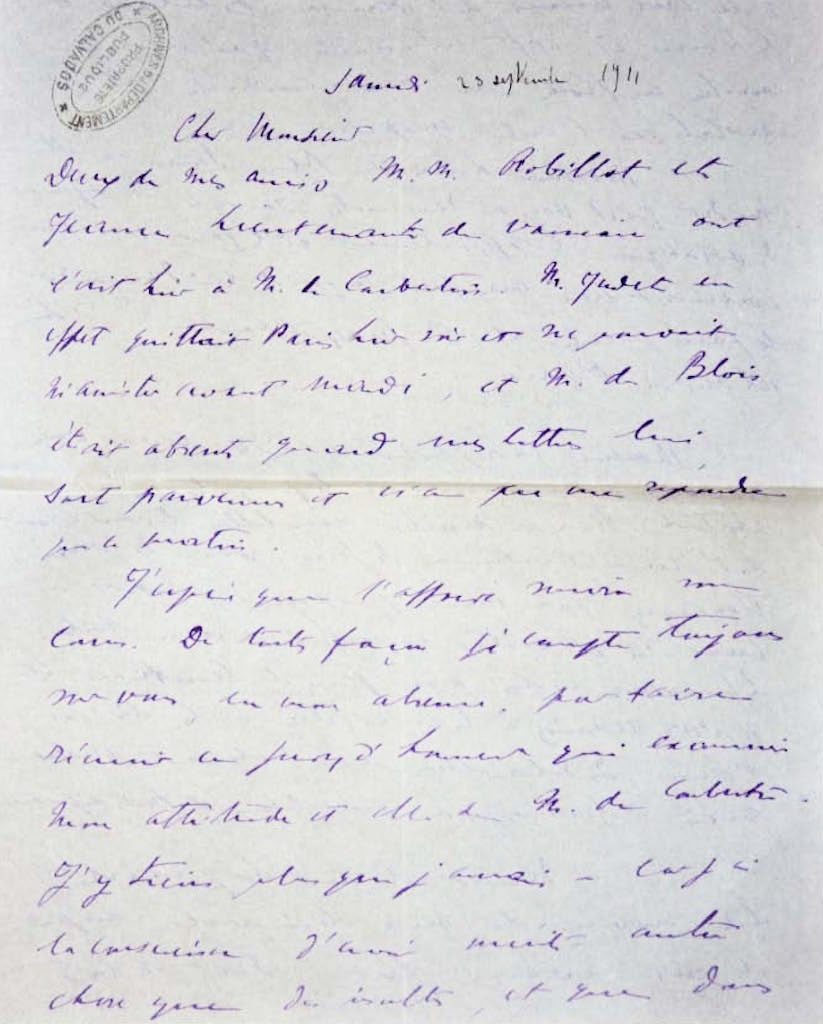 ARCHIVES DU DÉPARTEMENT DU CALVADOS
PROPRIÉTÉ PUBLIQUE
Samedi 23 septembre 1911
Cher Monsieur
Deux de mes amis M.M. Robillot et
lieutenants de vaisseau ont
écrit hier à M. de M. Judet en
effet quittait Paris hier soir et ne pouvait
m'assister avant mardi, et M. de Blois
était absent quand mes lettres lui
sont parvenues et n'a pu me répondre
que ce matin.
J'espère que l'affaire suivra son
cours. De toute façon je compte toujours
sur vous en mon absence, pour faire
réunir un jury d'honneur qui examine
mon attitude et celle de M. de
J'y tiens plus que jamais – car j'ai
la conscience d'avoir mérité autre
chose que des insultes, et que dans